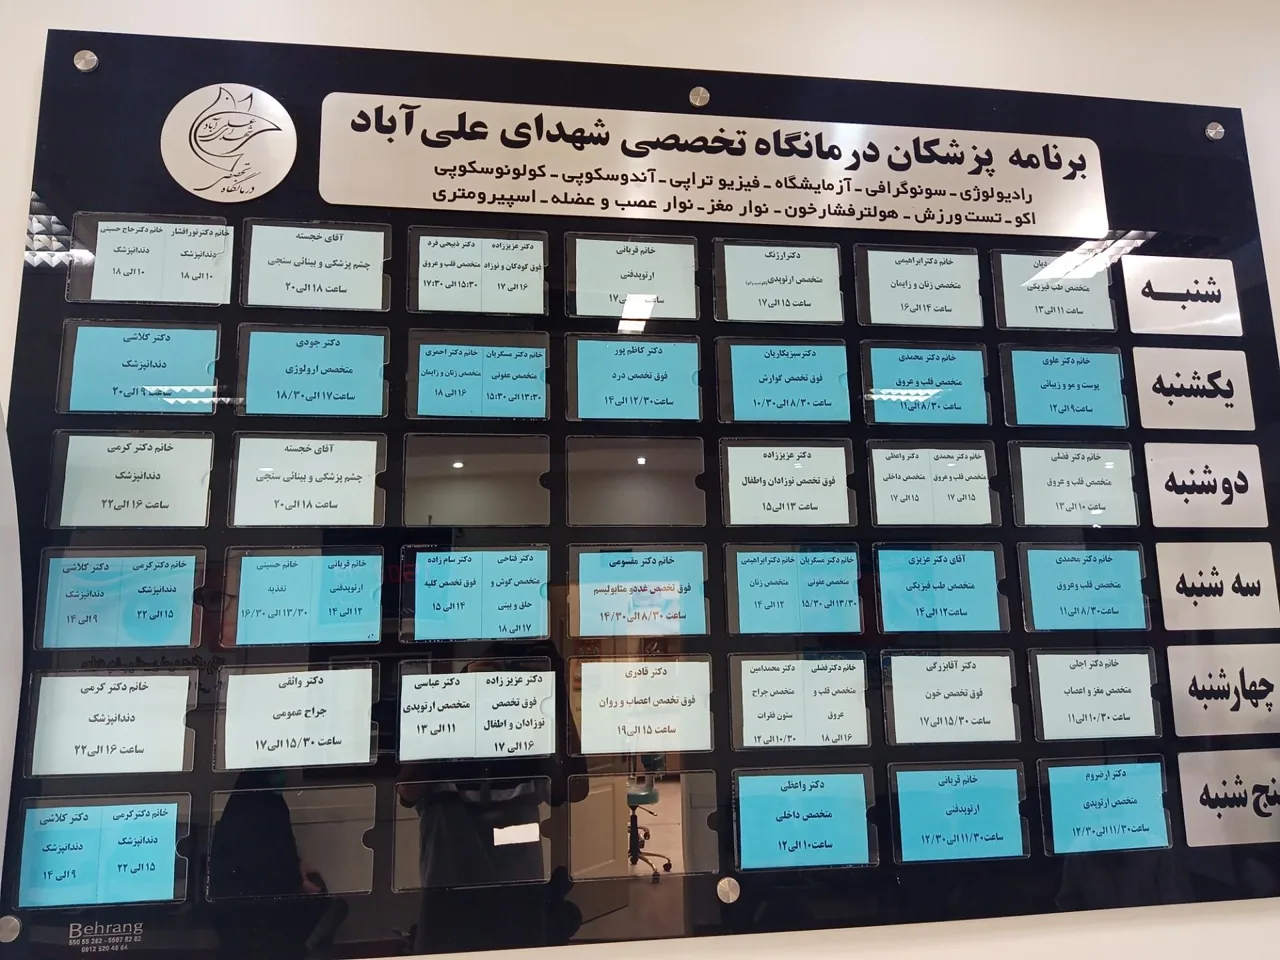 برنامه پزشکان درمانگاه تخصصی شهدای علی‌آباد
رادیولوژی - سونوگرافی - آزمایشگاه - فیزیوتراپی - آندوسکوپی - کولونوسکوپی
اکو - تست ورزش - هولترفشارخون - نوار مغز - نوار عصب و عضله - اسپیرومتری
شهدای علی آباد
درمانگاه تخصصی
شنبه
متخصص طب فیزیکی
ساعت ۱۱ الی ۱۳
خانم دکتر ابراهیمی
متخصص زنان و زایمان
ساعت ۱۴ الی ۱۶
دکتر ارژنگ
متخصص ارتوپدی
ساعت ۱۵ الی ۱۷
خانم قربانی
ارتوپدفنی
دکتر عزیززاده
فوق کودکان و نوزاد
۱۶ الی ۱۷
دکتر ذبیحی فرد
متخصص قلب و عروق
۱۵:۳۰ الی ۱۷:۳۰
آقای خجسته
چشم پزشکی و بینائی سنجی
ساعت ۱۸ الی ۲۰
خانم دکتر نورافشار
دندانپزشک
۱۰ الی ۱۸
خانم دکتر حاج حسینی
دندانپزشک
۱۰ الی ۱۸
یکشنبه
خانم دکتر علوی
پوست و مو و زیبائی
ساعت ۹ الی ۱۲
خانم دکتر محمدی
متخصص قلب و عروق
ساعت ۸/۳۰ الی ۱۱
دکتر سبزیکاریان
فوق تخصص گوارش
ساعت ۸/۳۰ الی ۱۰/۳۰
دکتر کاظم پور
فوق تخصص درد
ساعت ۱۲/۳۰ الی ۱۴
خانم دکتر مسگریان
متخصص عفونی
۱۳:۳۰ الی ۱۵:۳۰
خانم دکتر احمری
متخصص زنان و زایمان
۱۶ الی ۱۸
دکتر جودی
متخصص ارولوژی
ساعت ۱۷ الی ۱۸/۳۰
دکتر کلاشی
دندانپزشک
ساعت ۹ الی ۲۰
دوشنبه
خانم دکتر فضلی
متخصص قلب و عروق
ساعت ۱۰ الی ۱۳
خانم دکتر محمدی
متخصص قلب و عروق
۱۵ الی ۱۷
دکتر واعظی
متخصص داخلی
۱۵ الی ۱۷
دکتر عزیززاده
فوق تخصص نوزادان واطفال
ساعت ۱۳ الی ۱۵
آقای خجسته
چشم پزشکی و بینائی سنجی
ساعت ۱۸ الی ۲۰
خانم دکتر کرمی
دندانپزشک
ساعت ۱۶ الی ۲۲
سه شنبه
خانم دکتر محمدی
متخصص قلب وعروق
ساعت ۸/۳۰ الی ۱۱
آقای دکتر عزیزی
متخصص طب فیزیکی
ساعت ۱۲ الی ۱۴
خانم دکتر مسگریان
متخصص عفونی
۱۳/۳۰ الی ۱۵/۳۰
خانم دکتر ابراهیمی
متخصص زنان
۱۲ الی ۱۴
خانم دکتر مقسومی
فوق تخصص غددو متابولیسم
ساعت ۸/۳۰ الی ۱۴/۳۰
دکتر فتاحی
متخصص گوش و
حلق و بینی
۱۷ الی ۱۸
دکتر سام زاده
فوق تخصص کلیه
۱۴ الی ۱۵
خانم قربانی
ارتوپدفنی
۱۲ الی ۱۴
خانم حسینی
تغذیه
۱۳/۳۰ الی ۱۶/۳۰
خانم دکترکرمی
دندانپزشک
۱۵ الی ۲۲
دکتر کلاشی
دندانپزشک
۹ الی ۱۴
چهارشنبه
خانم دکتر اجلی
متخصص مغز و اعصاب
ساعت ۱۰/۳۰ الی ۱۱
دکتر آقابزرگی
فوق تخصص خون
ساعت ۱۵/۳۰ الی ۱۷
خانم دکترفضلی
متخصص قلب و
عروق
۱۶ الی ۱۸
دکتر محمدامین
متخصص جراح
ستون فقرات
۱۰/۳۰ الی ۱۲
دکتر قادری
فوق تخصص اعصاب و روان
ساعت ۱۵ الی ۱۹
دکتر عزیز زاده
فوق تخصص
نوزادان و اطفال
۱۶ الی ۱۷
دکتر عباسی
متخصص ارتوپدی
۱۱ الی ۱۳
دکتر واثقی
جراح عمومی
ساعت ۱۵/۳۰ الی ۱۷
خانم دکتر کرمی
دندانپزشک
ساعت ۱۶ الی ۲۲
پنج شنبه
دکتر ارضروم
متخصص ارتوپدی
ساعت ۱۱/۳۰ الی ۱۲/۳۰
خانم قربانی
ارتوپدفنی
ساعت ۱۱/۳۰ الی ۱۲/۳۰
دکتر واعظی
متخصص داخلی
ساعت ۱۰ الی ۱۲
خانم دکترکرمی
دندانپزشک
۱۵ الی ۲۲
دکتر کلاشی
دندانپزشک
۹ الی ۱۴
Behrang
550 55 262 - 5567 62 62
0912 520 46 64